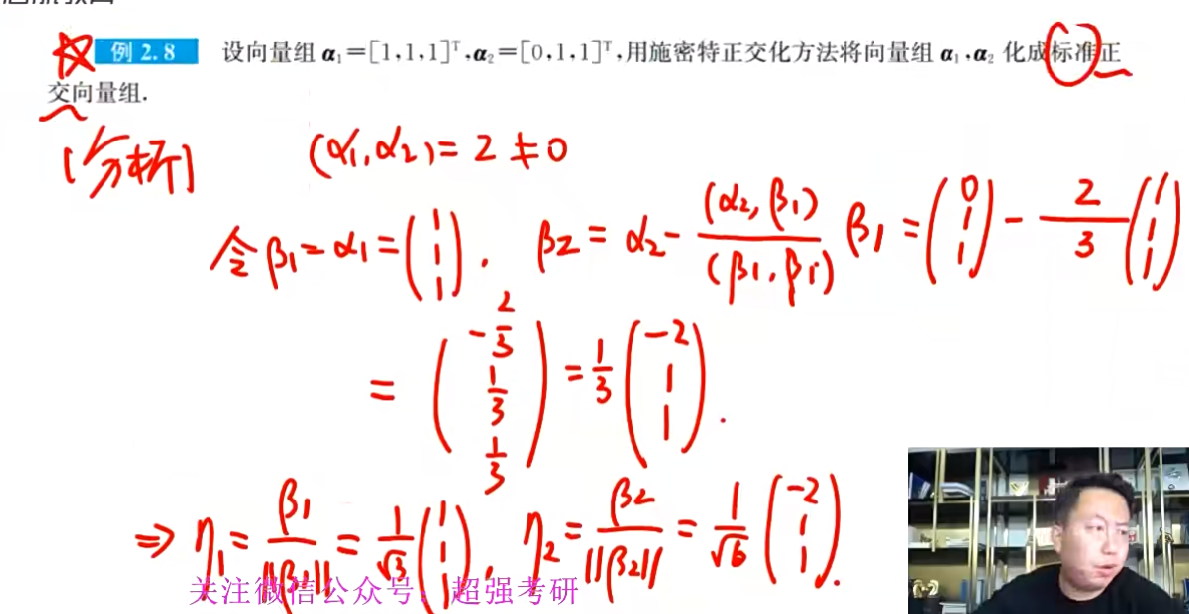 例 2.8 设向量组 α₁=[1,1,1]ᵀ,α₂=[0,1,1]ᵀ,用施密特正交化方法将向量组 α₁,α₂ 化成标准正
交向量组.
[分析] (α₁,α₂)=2≠0
令β₁=α₁=(1 1 1). β₂=α₂-(α₂,β₁)/(β₁,β₁) β₁=(0 1 1)-2/3(1 1 1)
=(-2/3 1/3 1/3)=1/3(-2 1 1).
⇒ η₁=β₁/||β₂||=1/√3(1 1 1), η₂=β₂/||β₂||=1/√6(-2 1 1).
关注微信公众号：超强考研